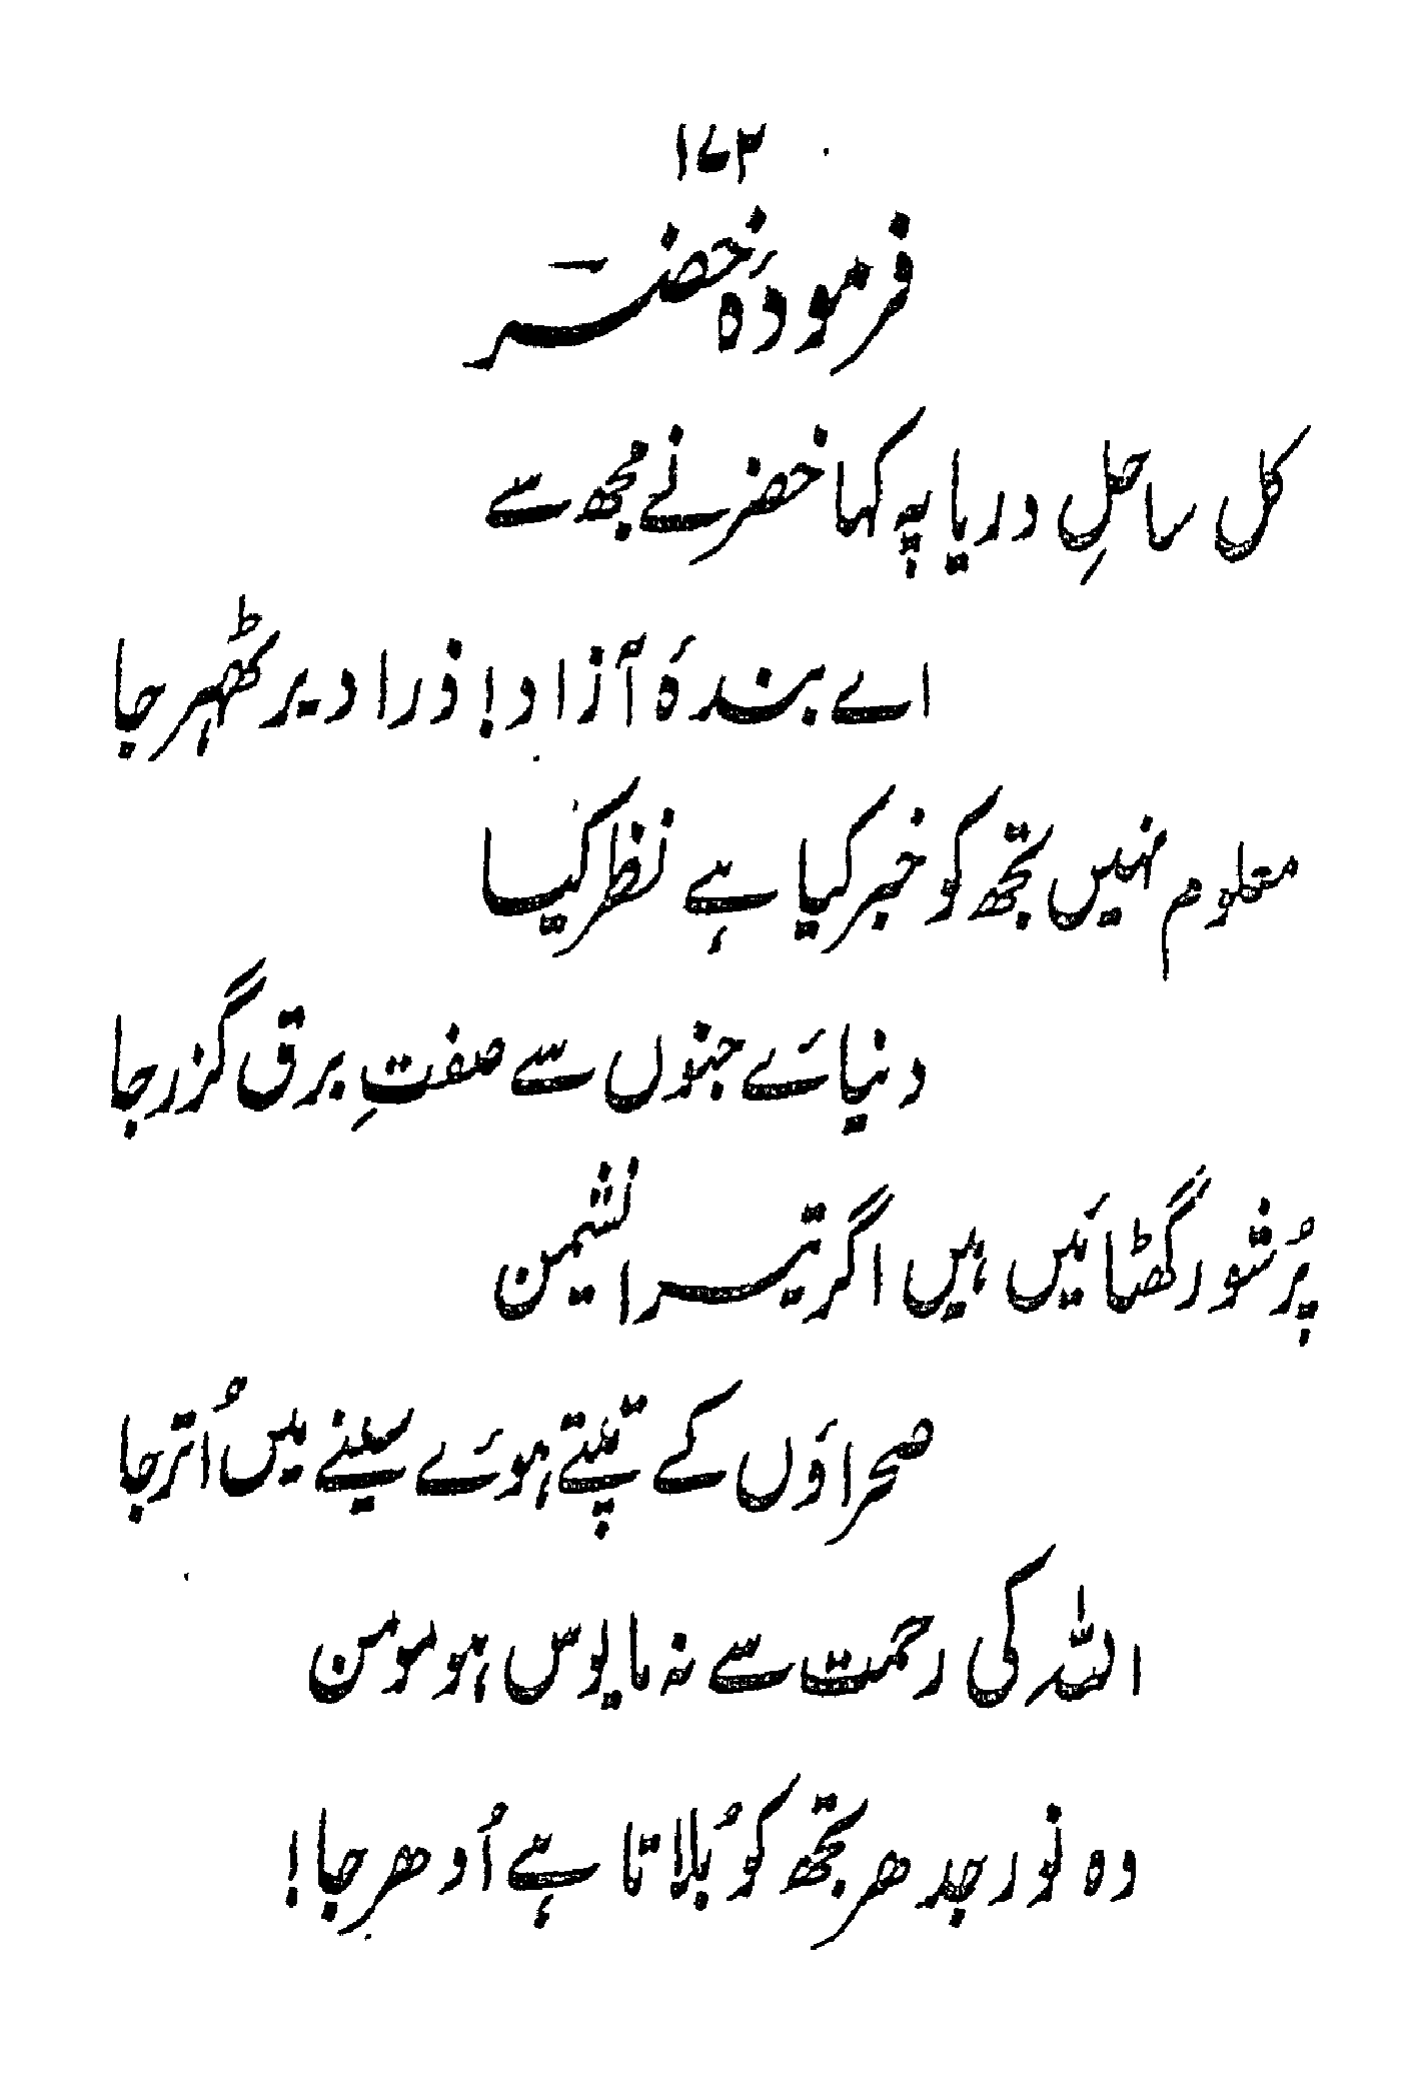 ۱۷۳
فرمودۂ خضر
کل ساحلِ دریا پہ کہا خضر نے مجھ سے
اے بندۂ آزاد! ذرا دیر ٹھہر جا
معلوم نہیں تجھ کو خبر کیا ہے نظر کیا
دنیائے جنوں سے صفتِ برق گزر جا
پُر شور گھٹائیں ہیں اگر تیرا نشیمن
صحراؤں کے تپتے ہوئے سینے میں اُتر جا
اللہ کی رحمت سے نہ مایوس ہو مومن
وہ نور جدھر تجھ کو بُلاتا ہے اُدھر جا!